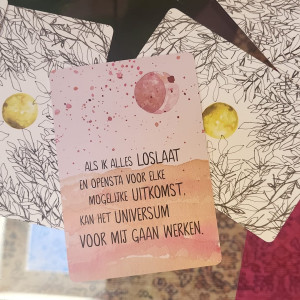 ALS IK ALLES LOSLAAT
EN OPENSTA VOOR ELKE
MOGELIJKE UITKOMST,
KAN HET UNIVERSUM
VOOR MIJ GAAN WERKEN.